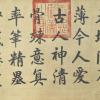 薄今人愛
古人神清
骨竦意真
率筆精墨